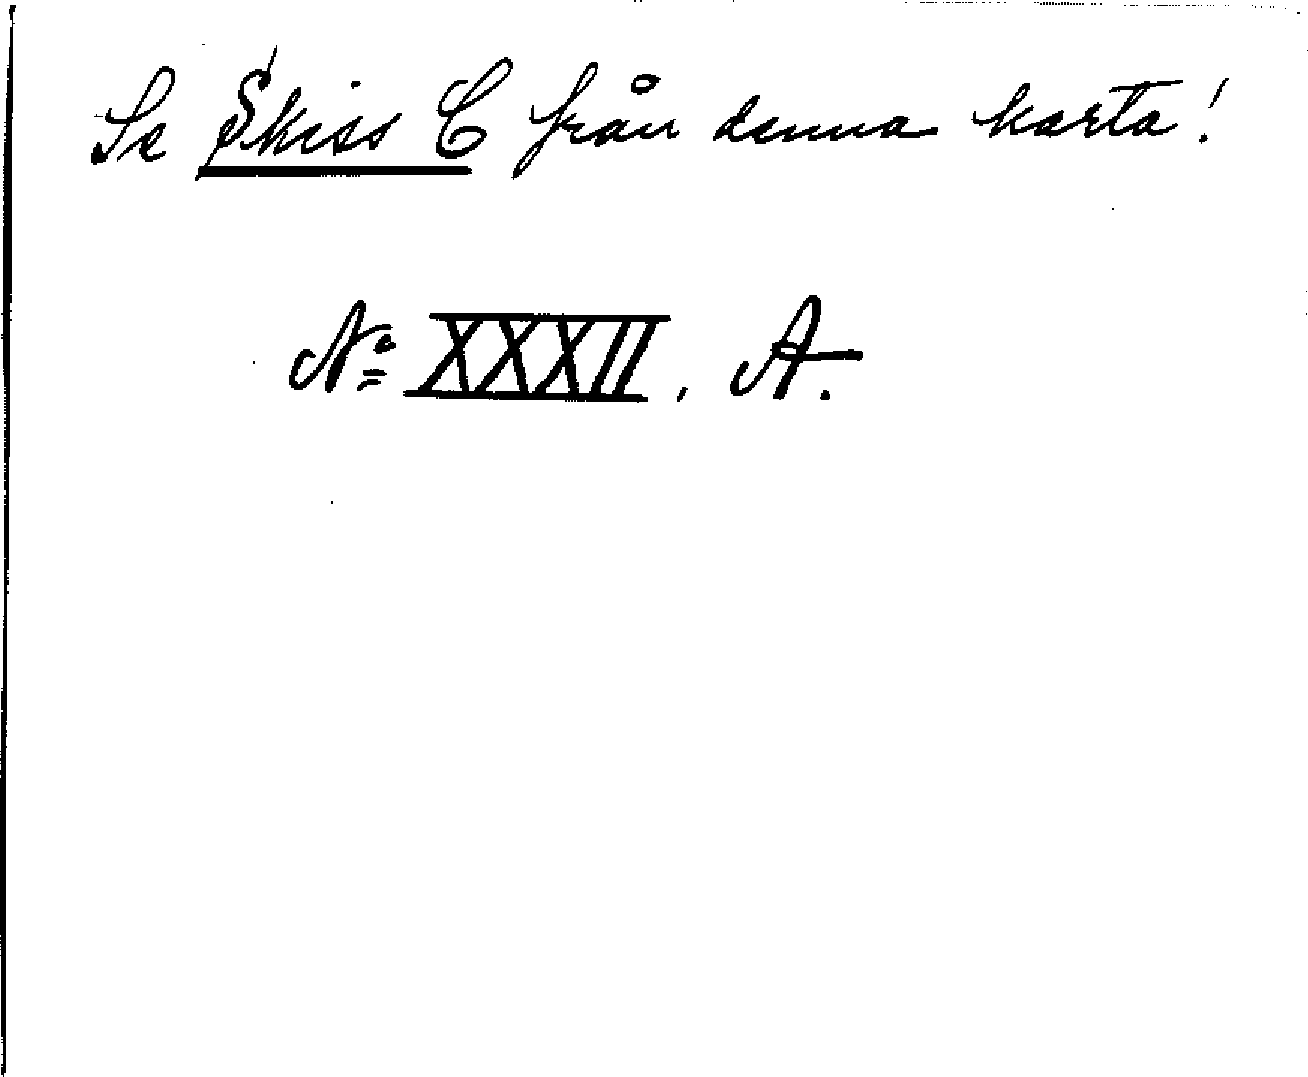 Se Skiss C från denna karta!
No XXXII, A.